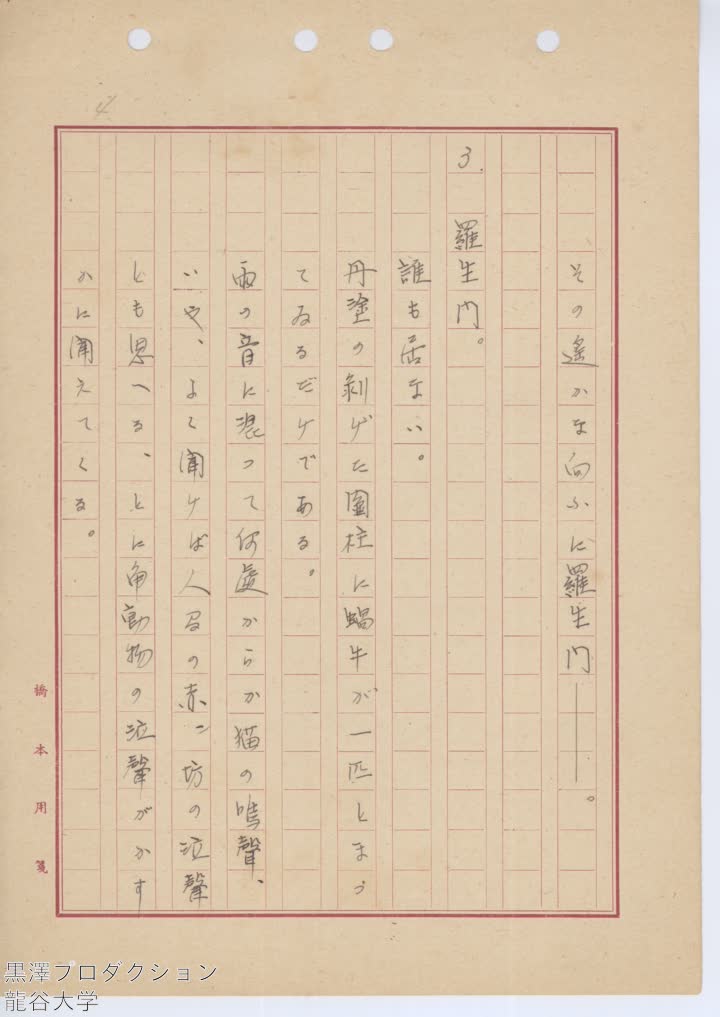 4
その遙かな向ふに羅生門――。
3. 羅生門。
誰も居ない。
丹塗の剥げた圓柱に蝸牛が一匹とまつ
てゐるだけである。
雨の音に混つて何處からか猫の鳴聲、
いや、よく聞けば人間の赤ン坊の泣聲
とも思へる、とに角動物の泣聲がかす
かに聞えてくる。
橋本用箋
黒澤プロダクション
龍谷大学